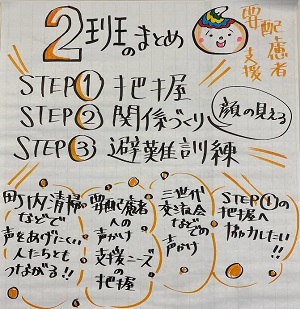 2班のまとめ
要配慮者
支援
STEP① 把握
STEP② 関係づくり
顔の見える
STEP③ 避難訓練
町内清掃
などで
声をあげにくい
人たちとも
つながる!!
要配慮者
への
声かけ
支援ニーズ
の把握
三世代
交流会
などでの
声かけ
STEP①の
把握へ
協力したい!!